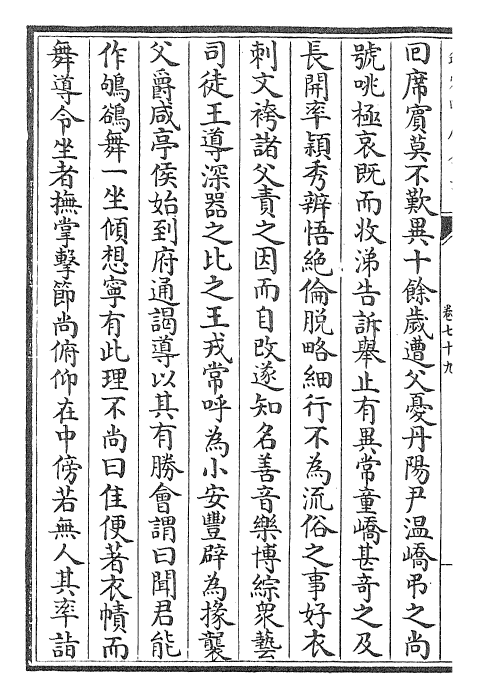 卷七十九
回席賓莫不歎異十餘歲遭父憂丹陽尹温嶠弔之尚
號咷極哀既而收涕告訴舉止有異常童嶠甚奇之及
長開率穎秀辨悟絶倫脱略細行不為流俗之事好衣
刺文袴諸父責之因而自改遂知名善音樂博綜衆藝
司徒王導深器之比之王戎常呼為小安豐辟為掾襲
父爵咸亭侯始到府通謁導以其有勝會謂曰聞君能
作鴝鵒舞一坐傾想寧有此理不尚曰佳便著衣幘而
舞導令坐者撫掌擊節尚俯仰在中傍若無人其率詣